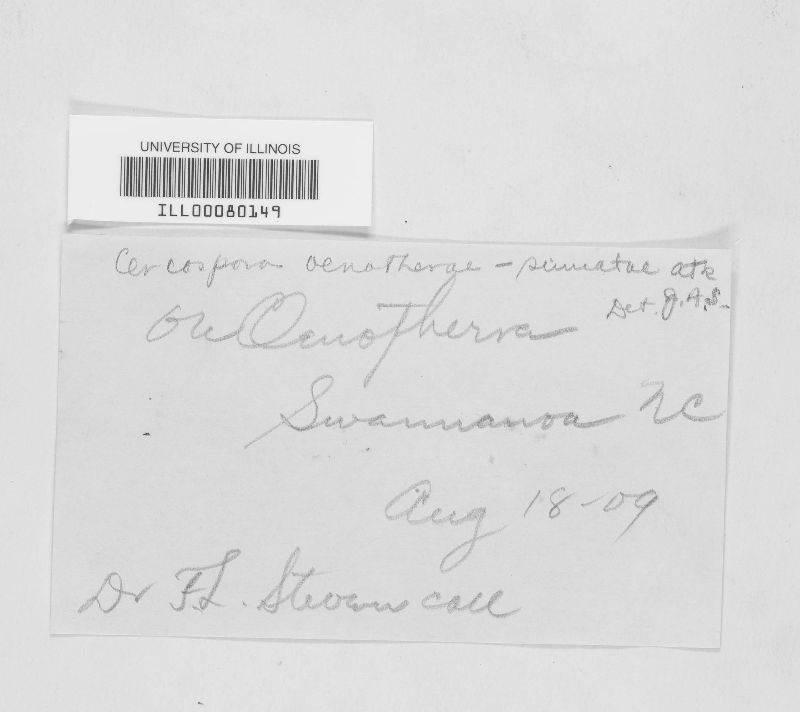 UNIVERSITY OF ILLINOIS
ILL00080149
Cercospora oenotherae - sinuatae atk
Det. J.A.S.
on Oenotherra
Swannanoa NC
Aug 18-09
Dr F.L. Stevens coll